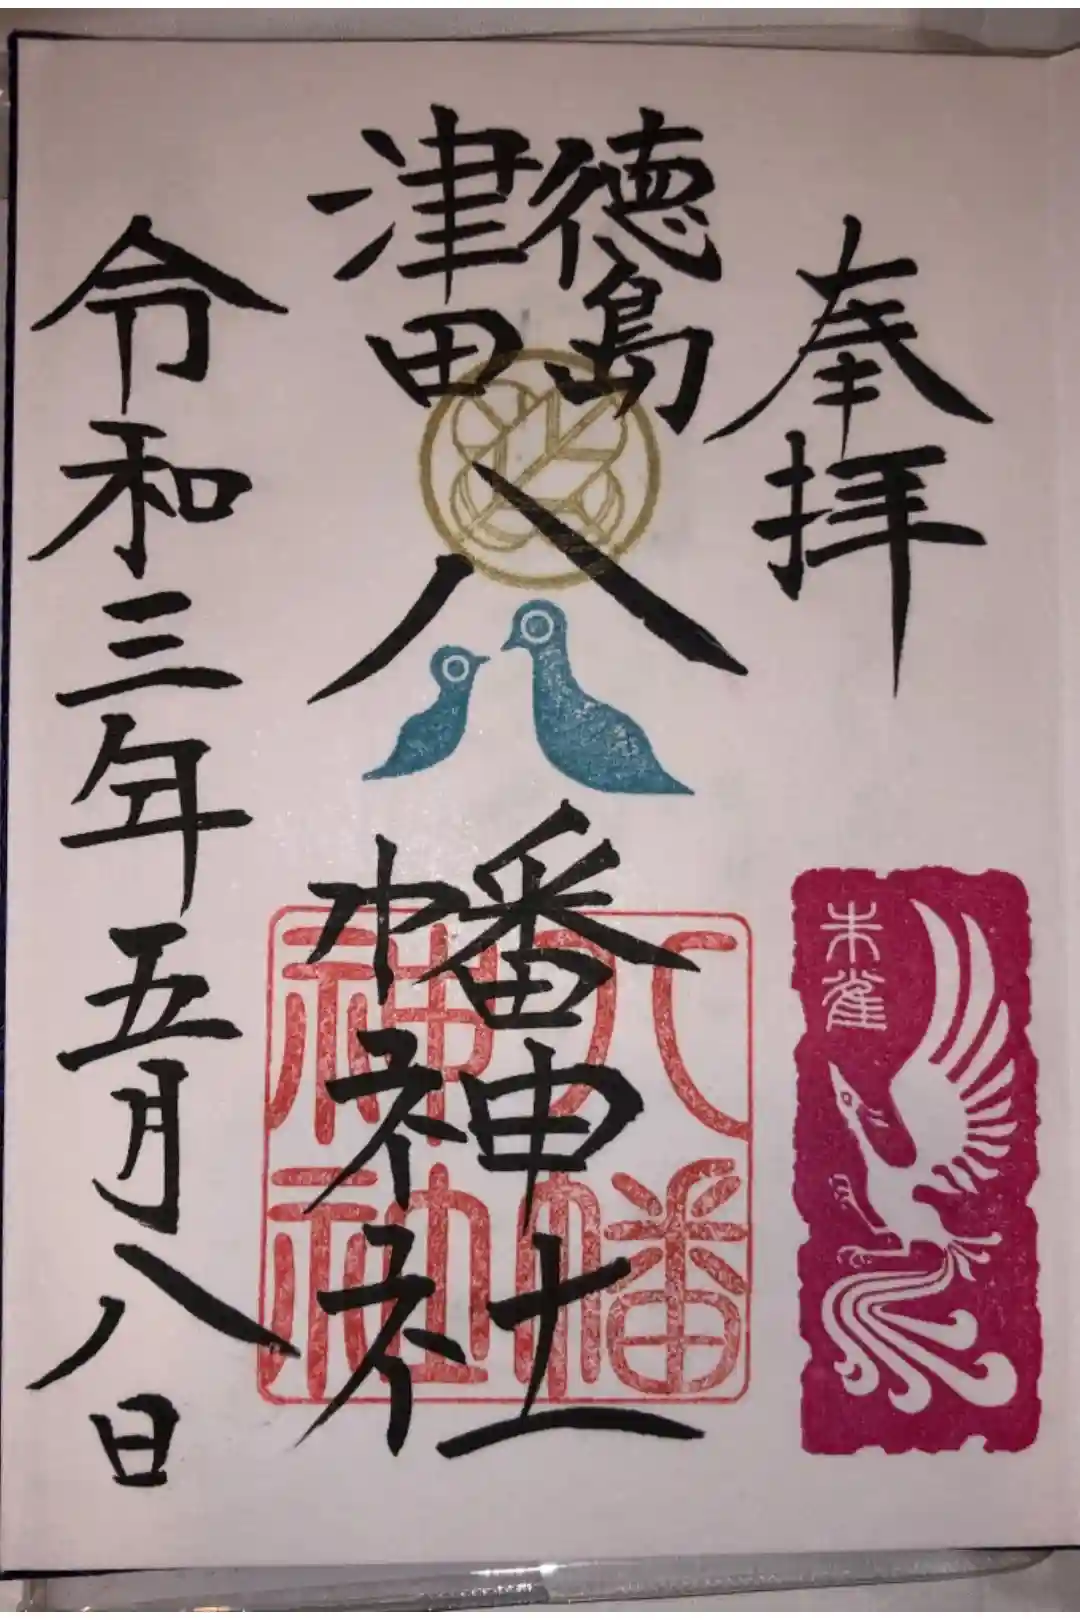 奉拝
朱雀
徳島
津田
八幡神社
八幡
神社
令和三年五月八日